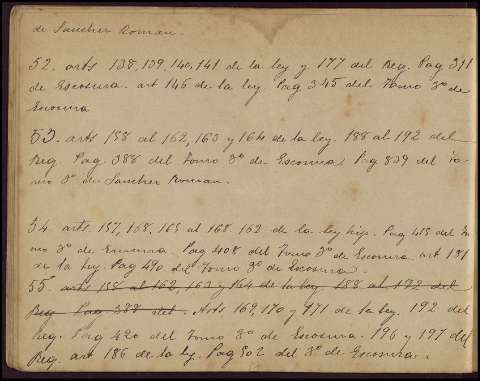 de Sancher Roman.
52. arts 138, 139, 140, 141 de la ley y 177 del Reg. Pag 311
de Escosura. art 146 de la ley. Pag 345 del Tomo 3º de
Escosura
53. arts 158 al 162, 163 y 164 de la ley. 188 al 192 del
Reg. Pag. 388 del Tomo 3º de Escosura Pag 839 del To-
mo 3º de Sancher Roman.
54. arts. 157, 158, 165 al 168. 162 de la ley hip. Pag 415 del To-
mo 3º de Escosura. Pag 408 del Tomo 3º de Escosura art 181
de la ley. Pag 490 del Tomo 3º de Escosura.
55. arts 158 al 162, 163 y 164 de la ley. 188 al 192 del
Reg Pag 388 del. Arts 169, 170 y 171 de la ley. 192 del
Reg. Pag 420 del Tomo 3º de Escosura. 196 y 197 del
Reg. art 186 de la ley. Pag 502 del 3º de Escosura.